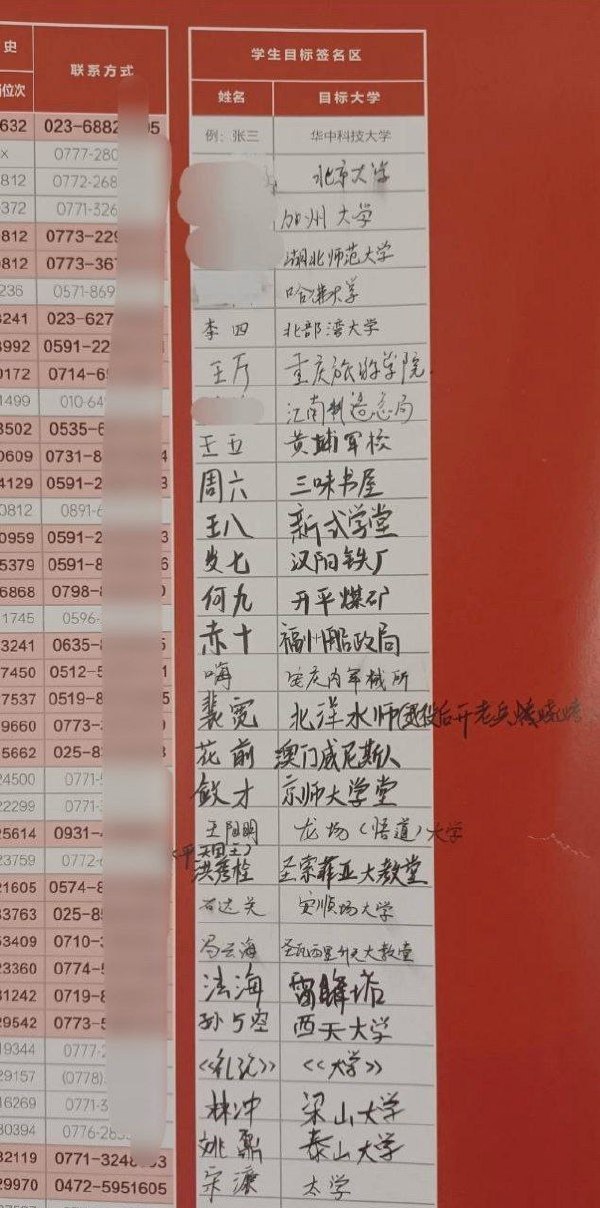 史
联系方式
位次
632 023-6882 05
x 0777-280
812 0772-268
372 0771-326
812 0773-229
812 0773-367
236 0571-869
3241 023-627
3992 0591-22
0172 0714-6
1499 010-64
3502 0535-6
0609 0731-8 4
4129 0591-2 3
0812 0891-6
0959 0591-2 3
5379 0591-8 6
6868 0798-8 0
1745 0596-
3241 0635- 5
7450 0512-5 1
7537 0519-8 5
9660 0773-
5662 025-8 3
24500 0771-
22299 0771-
25614 0931-4
23759 0772-
21605 0574-8
33763 025-8
53409 0710-3
23360 0774-5
31242 0719-8
29542 0773-5
19344 0777-2
29157 (0778)
16269 0771-3
30394 0776-28
32119 0771-3248 3
29970 0472-5951605
学生目标签名区
姓名 目标大学
例：张三 华中科技大学
北京大学
加州大学
湖北师范大学
哈佛大学
李四 北部湾大学
王 重庆旅游学院
江南制造总局
王五 黄埔军校
周六 三味书屋
王八 新式学堂
岁七 汉阳铁厂
何九 开平煤矿
赤十 福州船政局
嗨 安庆内军械所
裴宽 北洋水师(退役后开老兵烧烤
花前 澳门威尼斯人
敛才 京师大学堂
王阳明 龙场(悟道)大学
(平天国王)
洪秀栓 圣索菲亚大教堂
石达关 安顺场大学
圣瓦西里升天大教堂
法海 雷峰塔
孙与空 西天大学
《礼记》 《大学》
林冲 梁山大学
姚鼐 泰山大学
宋濂 太学